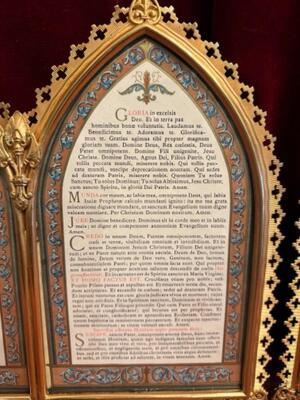 GLORIA in excelsis
Deo. Et in terra pax
hominibus bonæ voluntatis. Laudamus te.
Benedicimus te. Adoramus te. Glorifica-
mus te. Gratias agimus tibi propter magnam
gloriam tuam. Domine Deus, Rex cœlestis, Deus
Pater omnipotens. Domine Fili unigenite, Jesu
Christe. Domine Deus, Agnus Dei, Filius Patris. Qui
tollis peccata mundi, miserere nobis. Qui tollis pec-
cata mundi, suscipe deprecationem nostram. Qui
sedes ad dexteram Patris, miserere nobis. Quoniam Tu solus
Sanctus, Tu solus Dominus, Tu solus Altissimus, Jesu Christe,
cum sancto Spiritu, in gloria Dei Patris. Amen.
MUNDA cor meum, ac labia mea, omnipotens Deus, qui labia
Isaiæ Prophetæ calculo mundasti ignito: ita me tua grata
miseratione dignare mundare, ut sanctum Evangelium tuum digne
valeam nuntiare. Per Christum Dominum nostrum. Amen.
JUBE Domine benedicere. Dominus sit in corde meo et in labiis
meis: ut digne et competenter annuntiem Evangelium suum.
Amen.
CREDO in unum Deum, Patrem omnipotentem, factorem
cœli et terræ, visibilium omnium et invisibilium. Et
in unum Dominum Jesum Christum, Filium Dei uni-
genitum; et ex Patre natum ante omnia sæcula. Deum de Deo, lumen
de lumine, Deum verum de Deo vero. Genitum, non factum,
consubstantialem Patri; per quem omnia facta sunt. Qui propter
nos homines et propter nostram salutem descendit de cœlis
Et incarnatus est de Spiritu sancto ex Maria Virgine,
ET HOMO FACTUS EST. Crucifixus etiam pro nobis; sub
Pontio Pilato passus et sepultus est. Et resurrexit tertia die, secun-
dum scripturas. Et ascendit in cœlum; sedet ad dexteram Patris.
Et iterum venturus est cum gloria judicare vivos et mortuos; cujus
regni non erit finis. Et in Spiritum sanctum, Dominum et vivifican-
tem; qui ex Patre Filioque procedit. Qui cum Patre et Filio simul
adoratur, et conglorificatur; qui locutus est per Prophetas. Et
unam, sanctam, catholicam et apostolicam Ecclesiam. Confiteor
unum baptisma in remissionem peccatorum. Et exspecto resurrec-
tionem mortuorum; et vitam venturi sæculi. Amen.